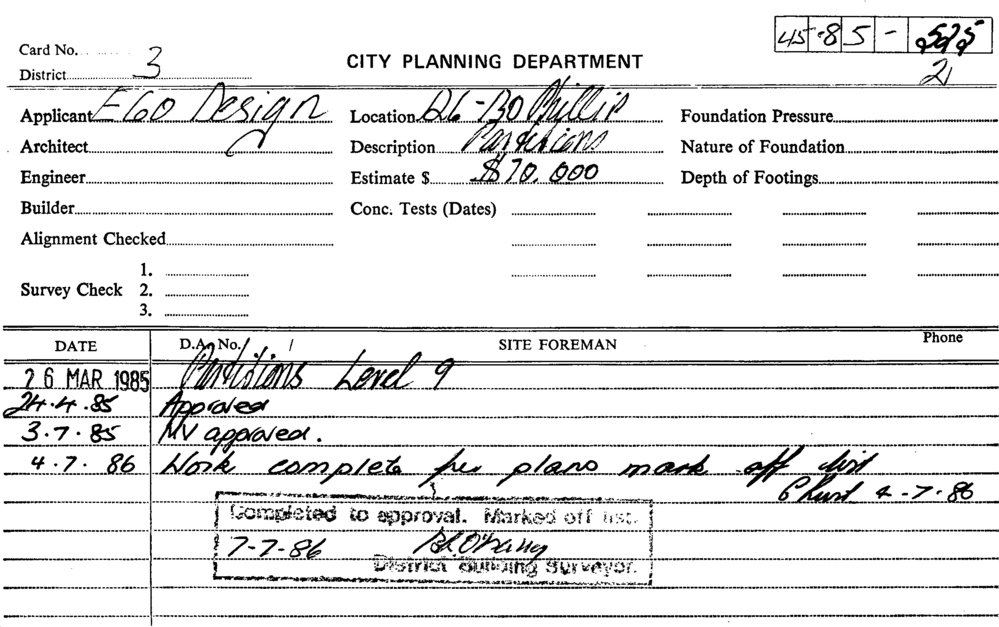 45-85-525
2
Card No.
District 3
CITY PLANNING DEPARTMENT
Applicant EGO Design
Location 26-30 Phillip
Foundation Pressure
Architect
Description Partitions
Nature of Foundation
Engineer
Estimate $ $70,000
Depth of Footings
Builder
Conc. Tests (Dates)
Alignment Checked
1.
Survey Check 2.
3.
DATE D.A. No. / / SITE FOREMAN Phone
26 MAR 1985 Partitions Level 9
24.4.85 Approved
3.7.85 MV approved.
4.7.86 Work complete per plans mark off list
4-7-86
Completed to approval. Marked off list.
7-7-86
District Building Surveyor.